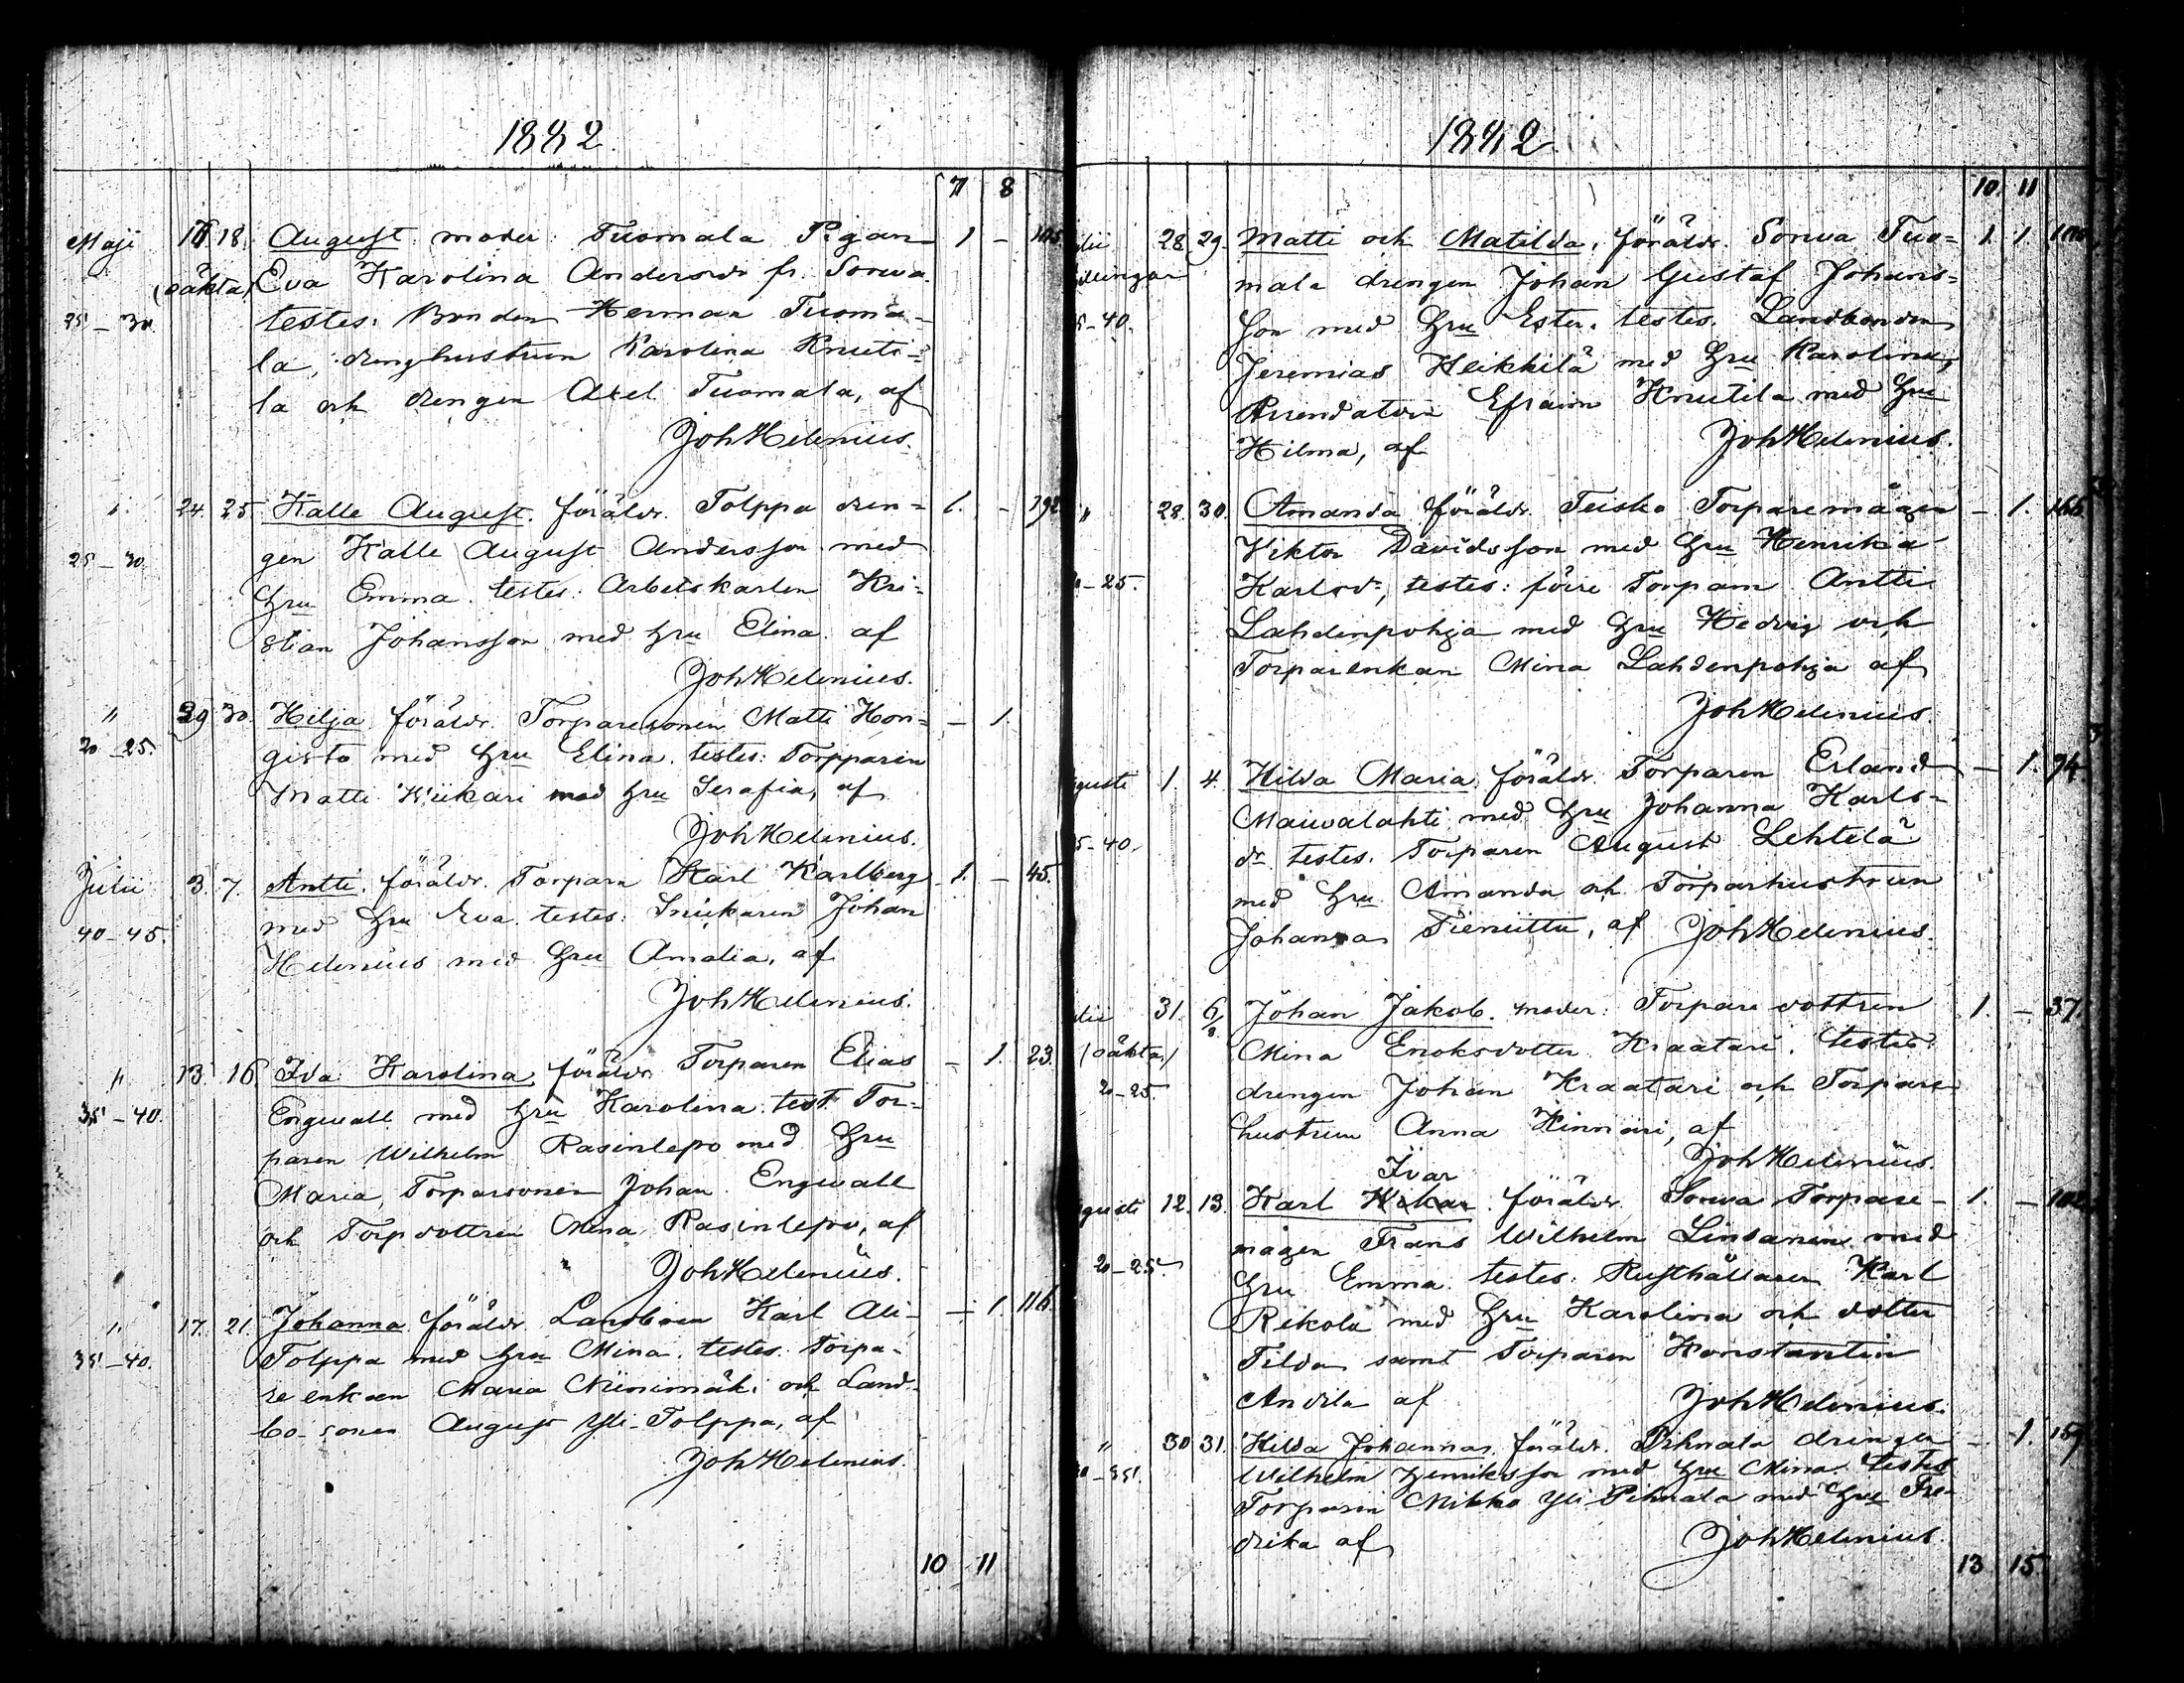 1882.
7 8
Maji 16 18. August. moder: Tuomala Pigan 1 - 105
(oäkta) Eva Karolina Andersdr fr. Sorwa.
25-30. testes: Bonden Herman Tuoma-
la, drenghustrun Karolina Knuti-
la och drengen Axel Tuomala, af
Joh Helenius.
" 24. 25. Kalle August. föräldr. Tolppa dren- 1. - 192
25-30. gen Kalle August Andersson med
hru Emma. testes: Arbetskarlen Kri-
stian Johansson med hru Elina. af
Joh Helenius.
" 29 30. Hilja föräldr. Torparesonen Matti Hon- - 1.
20-25. gisto med hru Elina. testes: Torpparen
Matti Kiikari med hru Serafia, af
Joh Helenius.
Julii 3. 7. Antti. föräldr. Torparn Karl Karlberg 1. - 45.
40-45. med hru Eva. testes: Snickaren Johan
Helenius med hru Amalia, af
Joh Helenius.
" 13. 16. Ida Karolina föräldr. Torparen Elias - 1. 23.
35-40. Engwall med hru Karolina. test. Tor-
paren Wilhelm Rasinlepo med hru
Maria, Torparsonen Johan Engwall
och Torpdottren Mina Rasinlepo, af
Joh Helenius.
" 17. 21. Johanna föräldr. Landboen Karl Ali- - 1 116.
35-40. Tolppa med hru Mina. testes. Torpa-
re enkan Maria Niinimäki och Land-
bo-sonen August Yli-Tolppa, af
Joh Helenius.
10 11
1882
10. 11
28. 29. Matti och Matilda. föräldr. Sorwa Tuo- 1. 1.
mala drengen Johan Gustaf Johans-
-40. son med hru Ester. testes. Landbonden
Jeremias Heikkilä med hru Karolina,
Arrendatorn Efraim Knutila med hru
Hilma, af Joh Helenius.
" 28. 30. Amanda föräldr. Teisko Torparemågen - 1. 166.
Viktor Davidsson med hru Henrika
-25. Karlsdr, testes: förre Torparn Antti
Lahdenpohja med hru Hedvig och
Torparenkan Mina Lahdenpohja af
Joh Helenius
1. 4. Hilda Maria föräldr. Torparen Erland - 1. 94
Maiwalahti med hru Johanna Karls-
-40. dr testes. Torparen August Lehtelä
med hru Amanda och Torparhustrun
Johanna Pieniittu, af Joh Helenius.
31. 6/8 Johan Jakob. moder: Torpare dottren 1. - 37.
(oäkta) Mina Enoksdotter Kraatari. testes:
20-25. drengen Johan Kraatari och Torpare
hustrun Anna Kinnari, af
Joh Helenius.
Ivar
12. 13. Karl föräldr. Sorwa Torpare- 1. - 102
mågen Frans Wilhelm Lindanen med
20-25. hru Emma. testes: Rusthållaren Karl
Rekola med hru Karolina och dotter
Tilda samt Torparen Konstantin
Andila af Joh Helenius.
" 30 31. Hilda Johanna, föräldr. Pihnala drengen - 1. 159
Wilhelm Henriksson med hru Mina. testes
Torparen Mikko Yli-Pihnala med hru Fre-
drika af Joh Helenius
13 15.